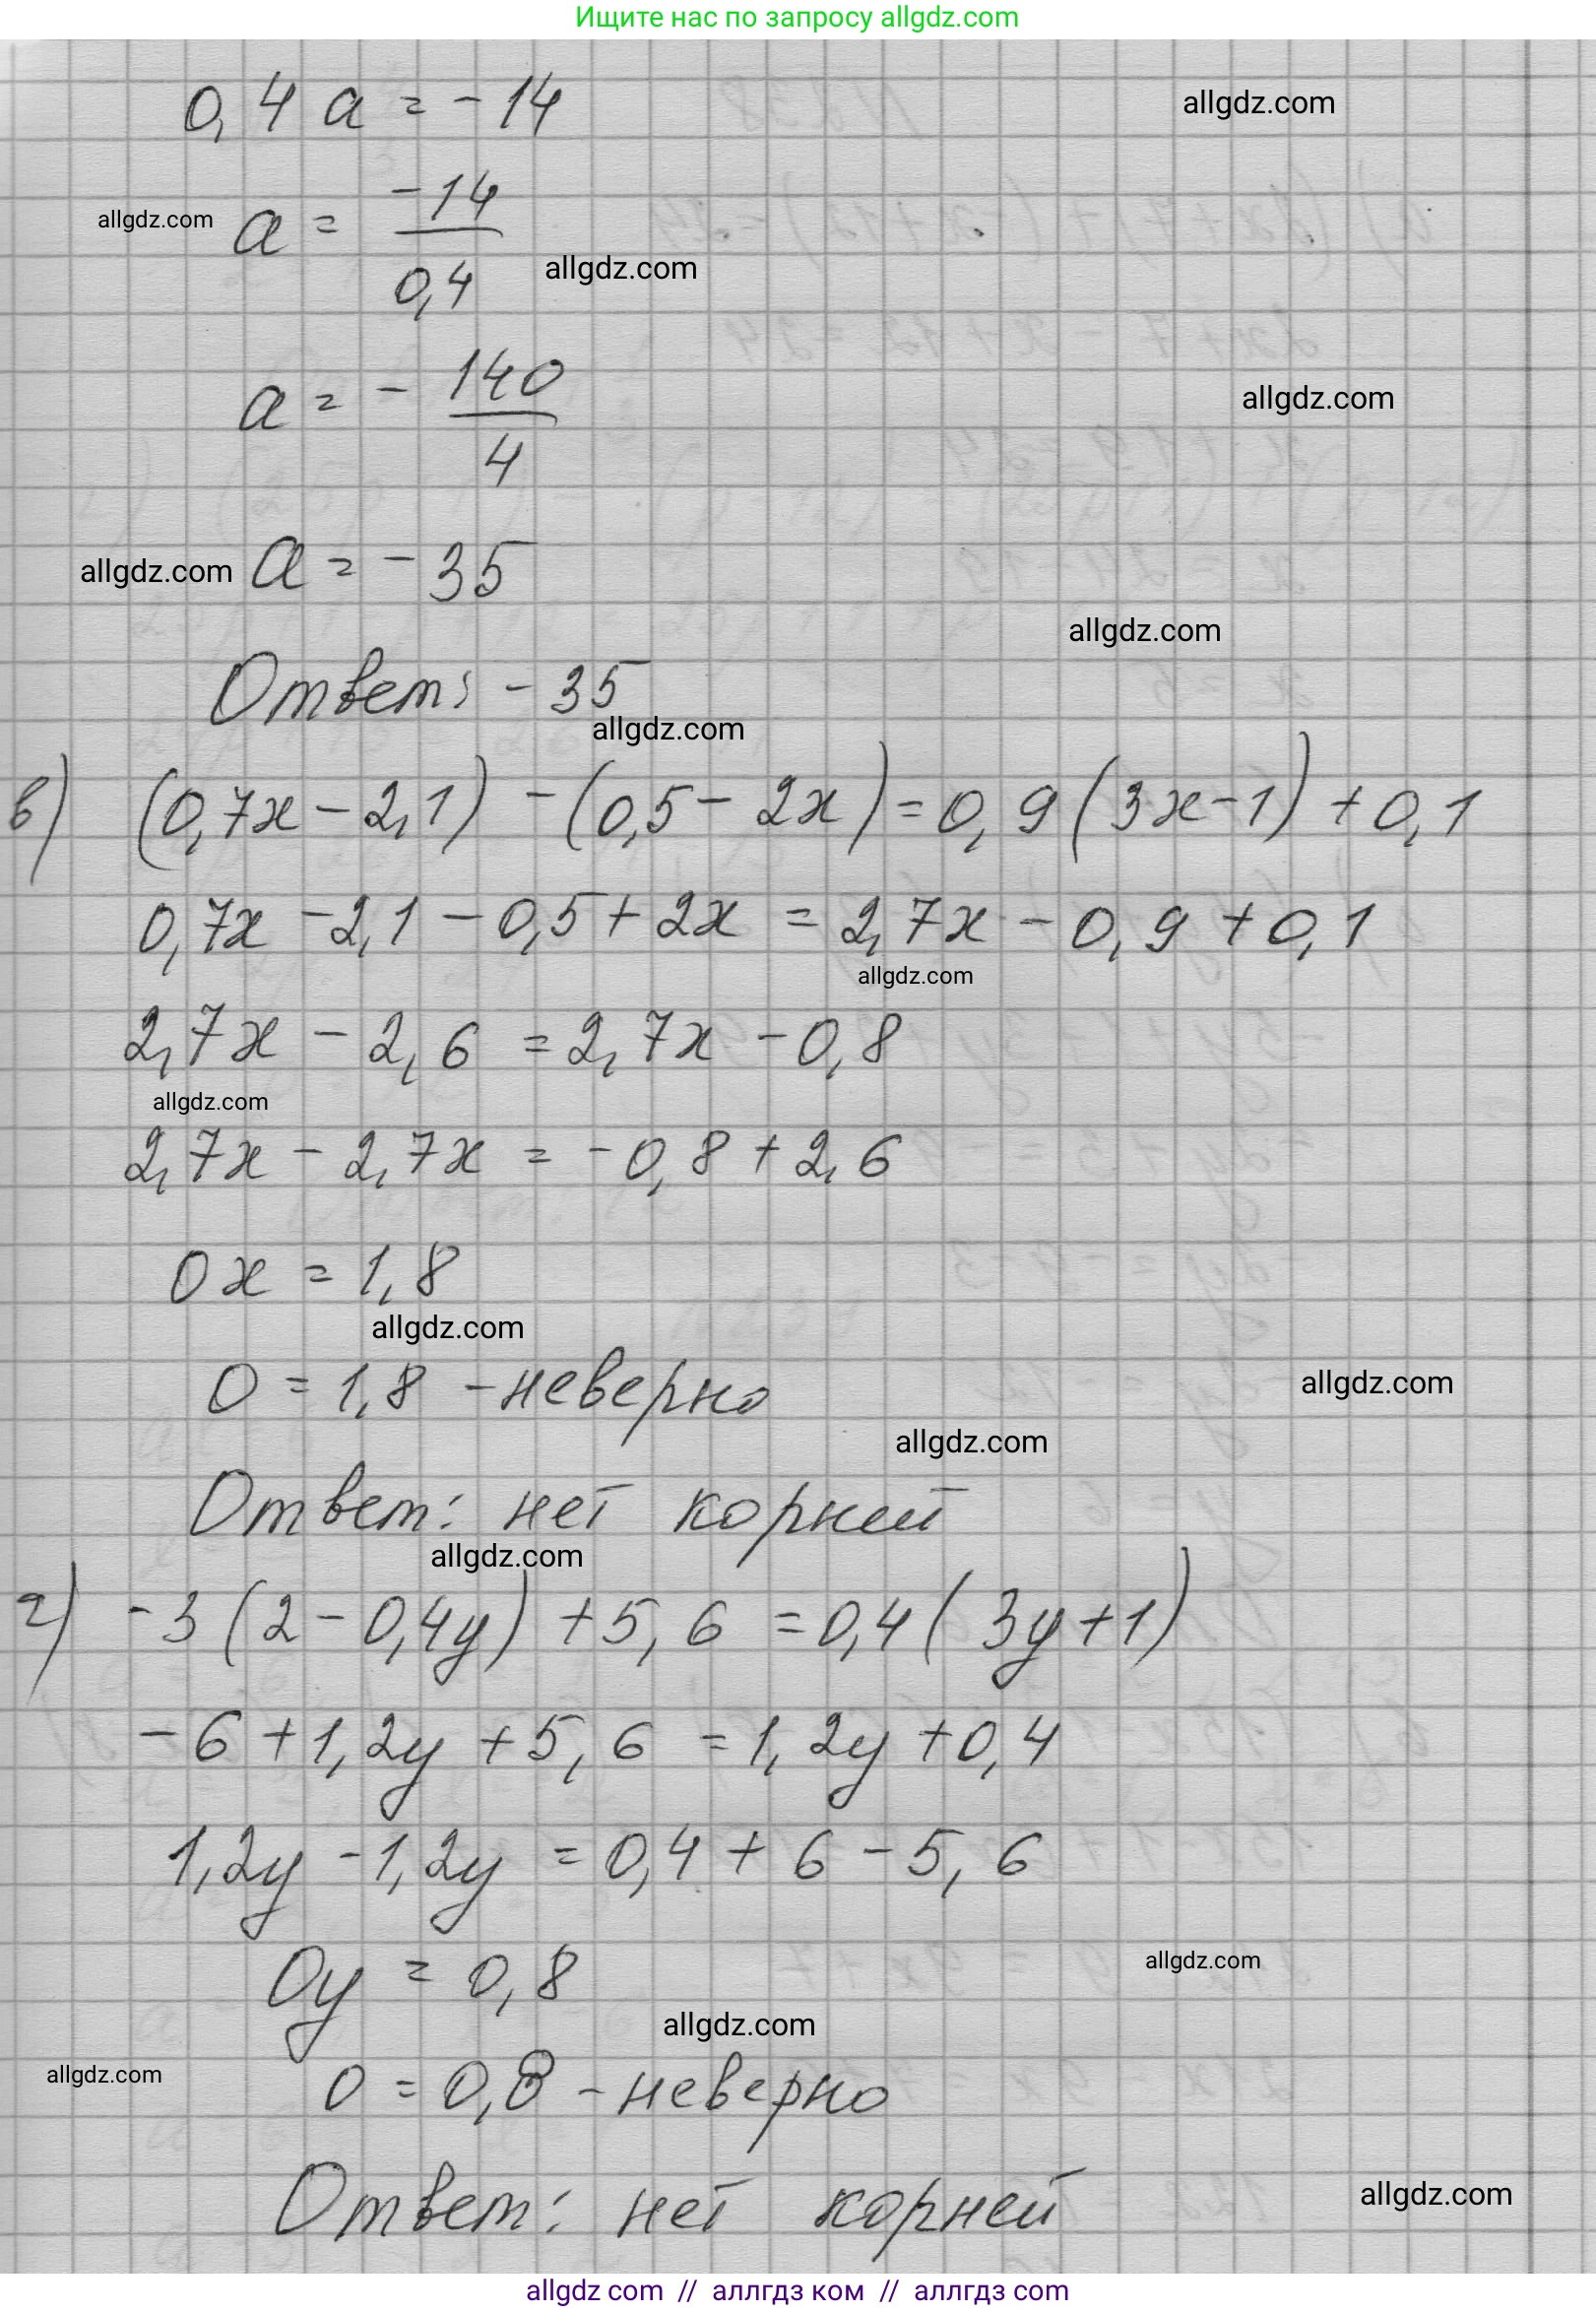 Ищите нас по запросу allgdz.com
0,4 a = -14
allgdz.com
a = -14/0,4
allgdz.com
allgdz.com
a = - 140/4
allgdz.com
allgdz.com
a = -35
allgdz.com
Ответ: -35
allgdz.com
в) (0,7x - 2,1) - (0,5 - 2x) = 0,9(3x-1) + 0,1
0,7x - 2,1 - 0,5 + 2x = 2,7x - 0,9 + 0,1
allgdz.com
2,7x - 2,6 = 2,7x - 0,8
allgdz.com
2,7x - 2,7x = -0,8 + 2,6
0x = 1,8
allgdz.com
0 = 1,8 - неверно
allgdz.com
allgdz.com
Ответ: нет корней
allgdz.com
г) -3(2 - 0,4y) + 5,6 = 0,4(3y+1)
-6 + 1,2y + 5,6 = 1,2y + 0,4
1,2y - 1,2y = 0,4 + 6 - 5,6
0y = 0,8
allgdz.com
allgdz.com
allgdz.com
0 = 0,8 - неверно
Ответ: нет корней
allgdz.com
allgdz com // аллгдз ком // аллгдз com